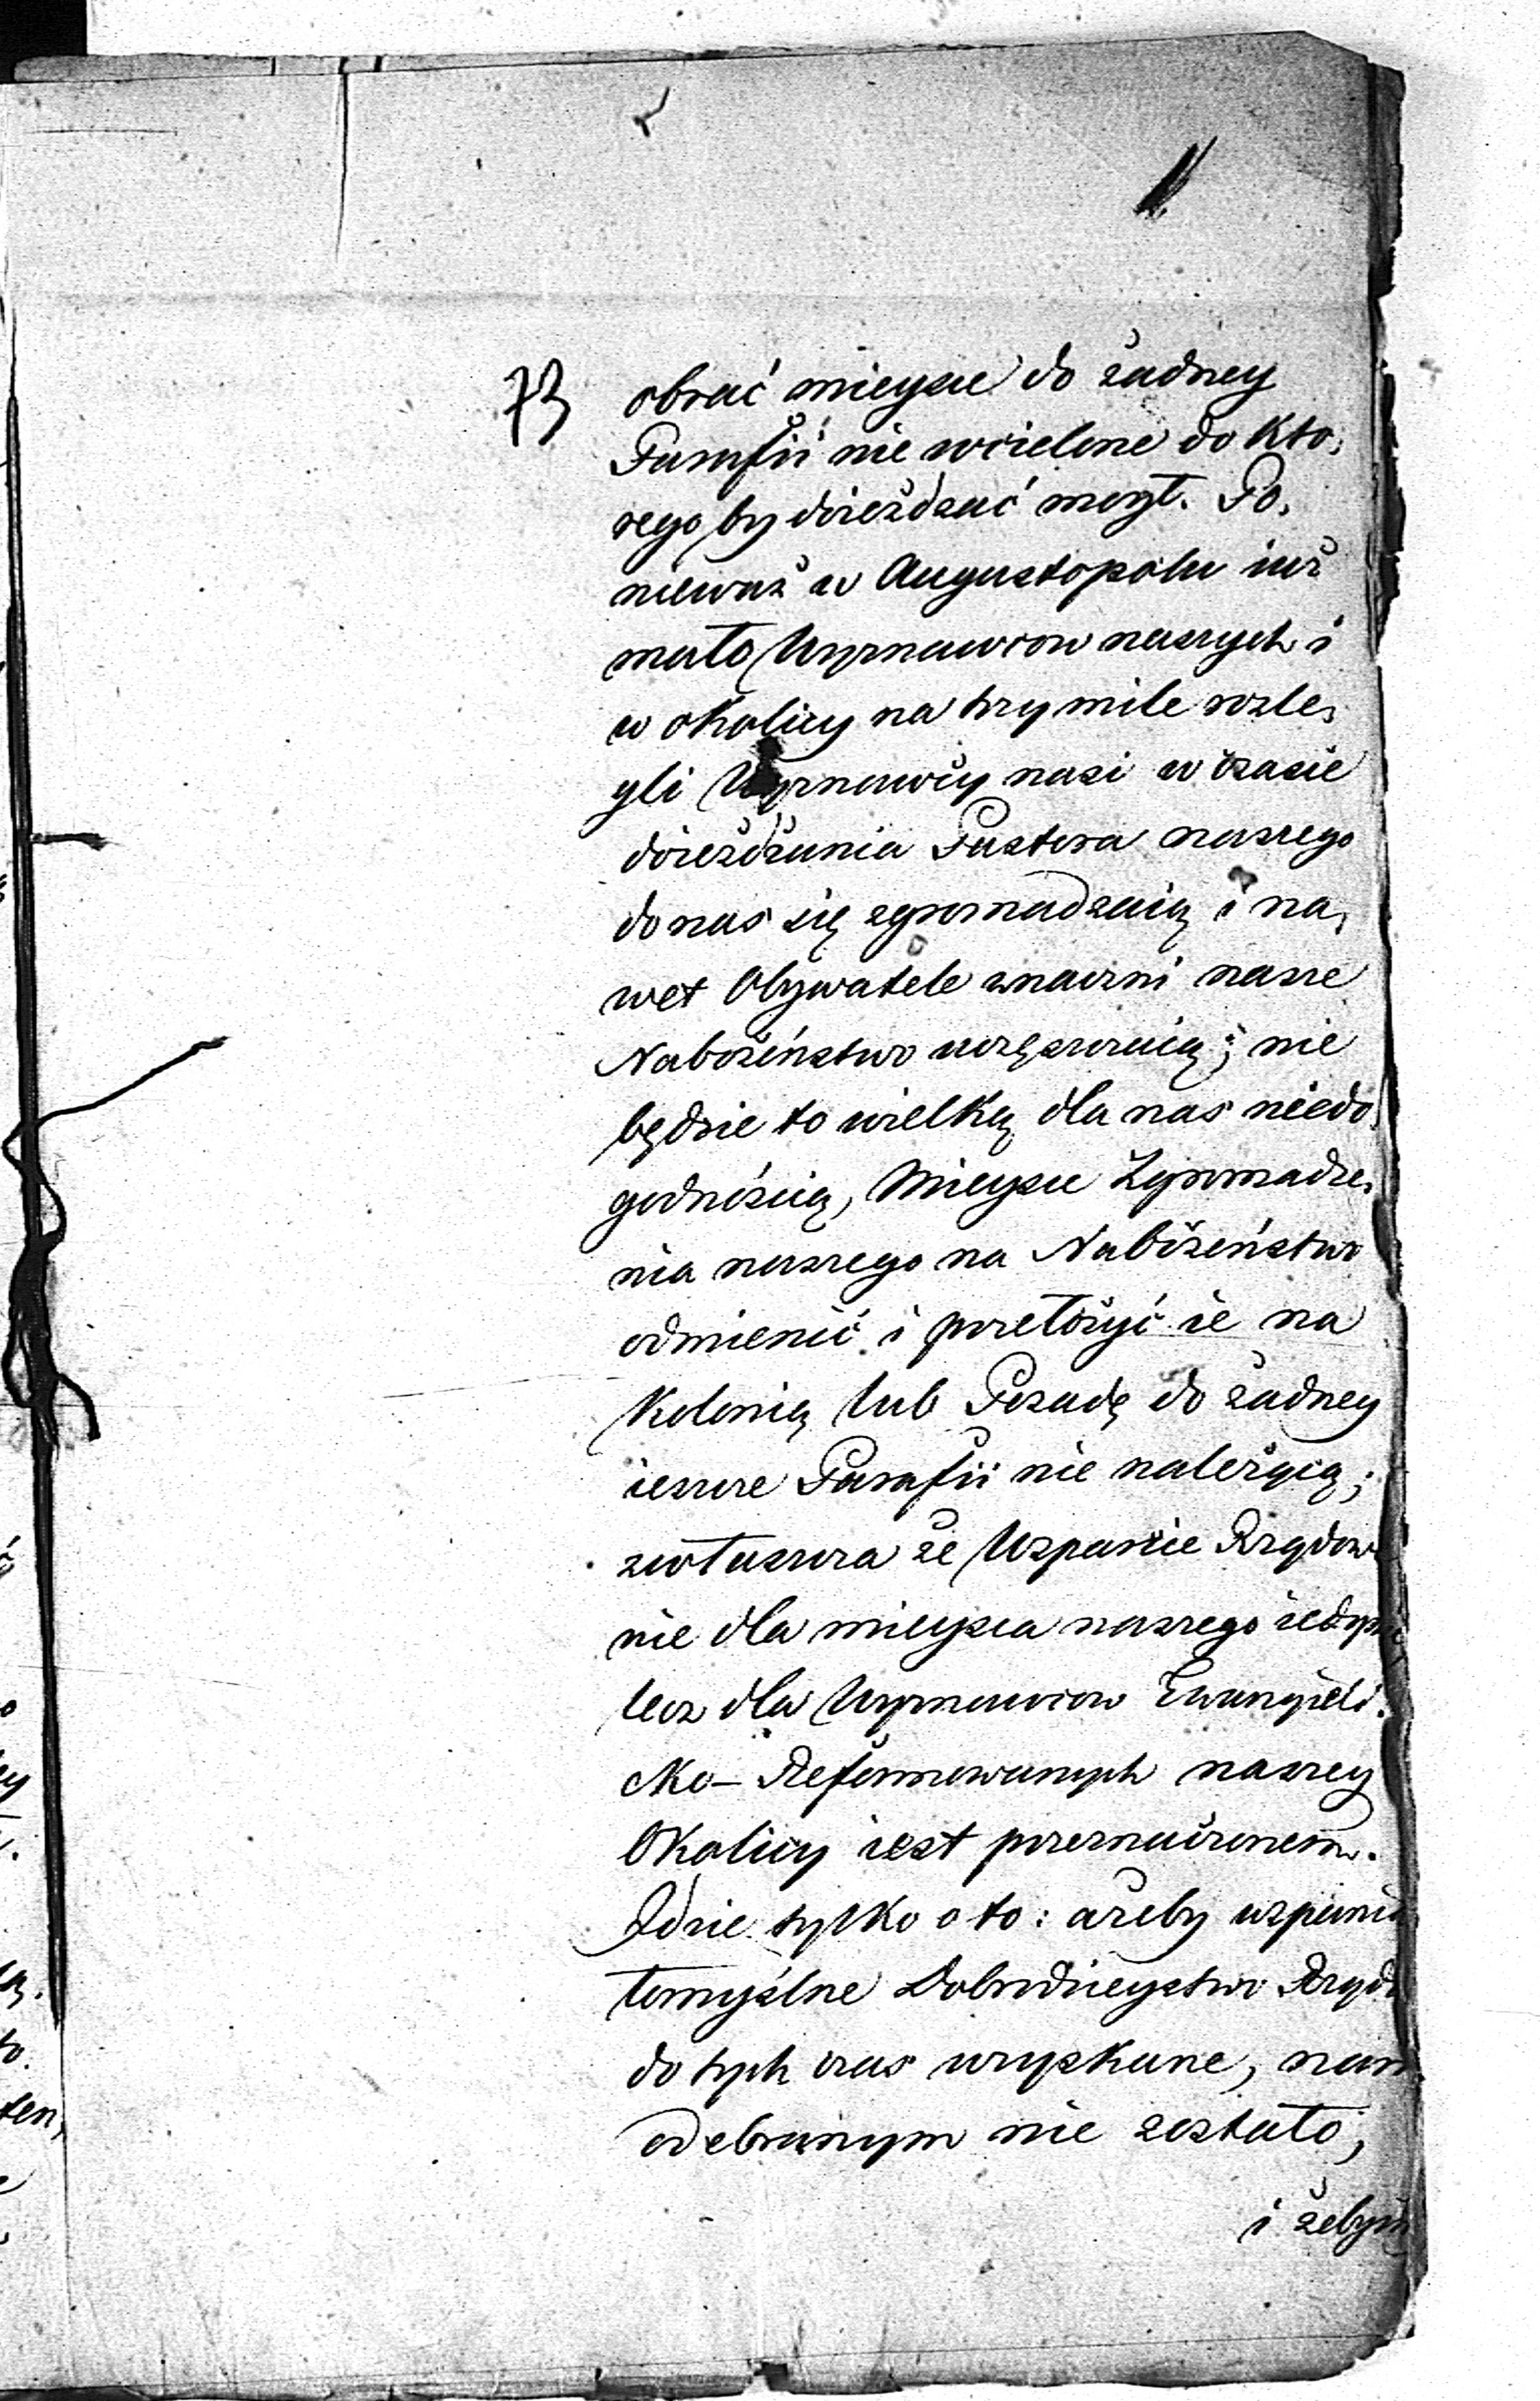 73
obrać mieysce do żadney
Parafii nie wcielone do kto,
rego by doieżdzać mogł. Po,
nieważ w Augustopolu iuż
mało Wyznawcow naszych i
w okolicy na trzy mile rozle,
gli Wyznawcy nasi w czasie
doieżdżania Pastora naszego
do nas się zgromadzaią i na,
wet Obywatele znaczni nasze
Nabożeństwo uczęszczaią; nie
będzie to wielką dla nas niedo
godnością, Mieysce Zgromadze,
nia naszego na Nabożeństwo
odmienić i przełożyć ie na
Kolonią lub Posadę do żadney
ieszcze Parafii nie należącą;
zwłaszcza że Wsparcie Rządow
nie dla mieysca naszego iedyn
lecz dla Wyznawcow Ewangieli,
cko-Reformowanych naszey
Okolicy iest przeznaczonem.
Idzie tylko o to: ażeby wspani
łomyślne Dobrodzieystwo Rząd
do tych czas uzyskane, nam
odebranym nie zostało,
i żeby